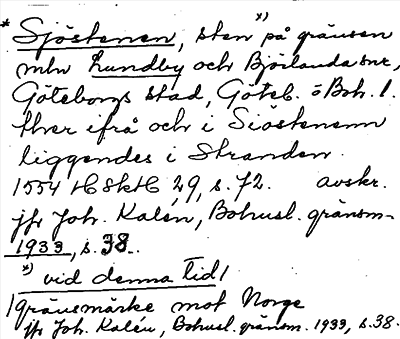 * Sjöstenen, sten x) på gränsen
mln Lundby och Björlanda snr,
Göteborgs stad, Göteb. o Boh. l.
ther ifrå och i Siöstenenn
liggendes i Stranden.
1554 HSkH 29, s. 72. avskr.
jfr Joh. Kalén, Bohusl. gränsm.
1933, s. 38.
x) vid denna tid /
/gränsmärke mot Norge
jfr Joh. Kalén, Bohusl. gränsm. 1933, s. 38.